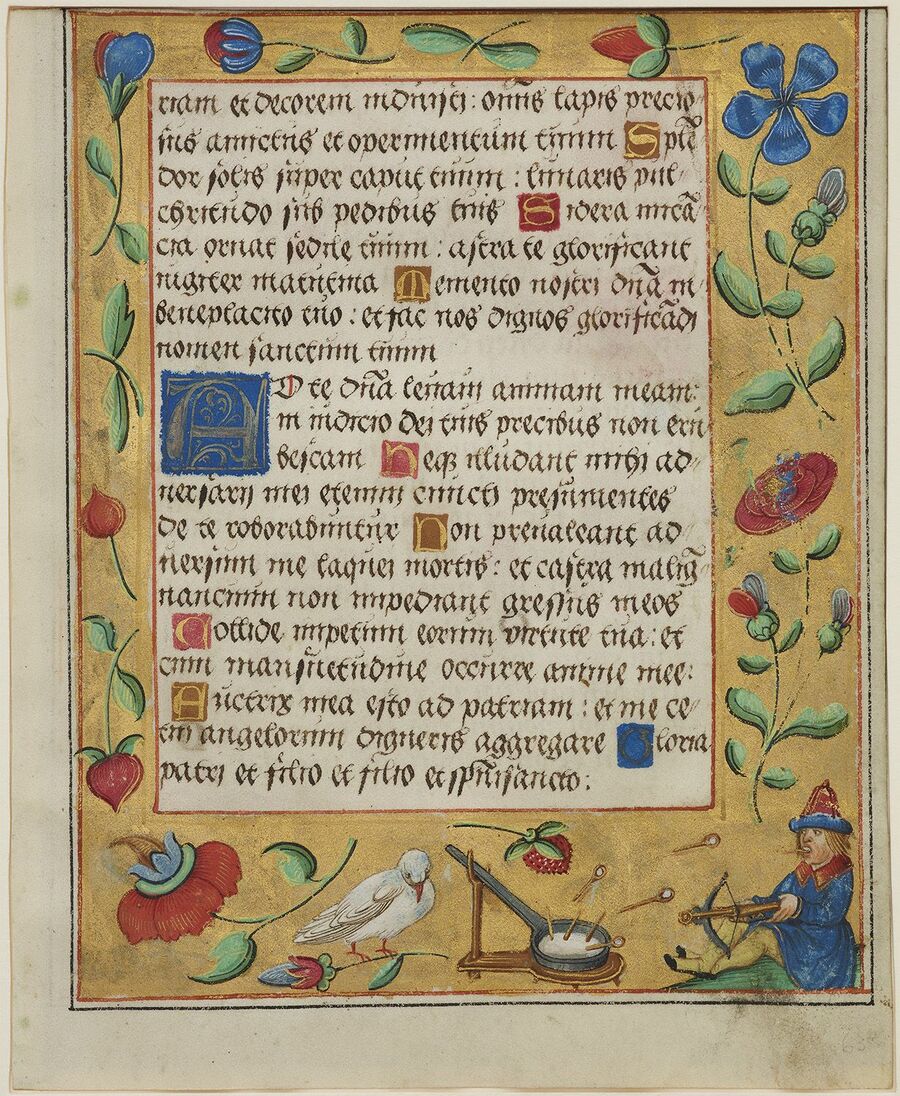 riam et decorem induisti: om̄is lapis precio
sus amictus et operimentum tuum Splē
dor solis super caput tuum : lunaris pul
chritudo sub pedibus tuis Sidera micā
cia ornat sedile tuum : astra te glorificant
iugiter matutina Memento nostri dn̄a in
beneplacito tuo : et fac nos dignos glorificādi
nomen sanctum tuum
AD te dn̄a levavi animam meam:
in iudicio dei tuis precibus non eru
bescam Neqȝ illudant mihi ad
versarij mei etenim cuncti presumentes
de te roborabuntur Non prevaleant ad
versum me laquei mortis: et castra maliḡ
nancium non impediant gressus meos
Collide impetum eorum virtute tua: et
cum mansuetudine occurre anime mee:
Auctrix mea esto ad patriam : et me ce
tui angelorum digneris aggregare Gloria
patri et filio et filio et sp̄uisancto: